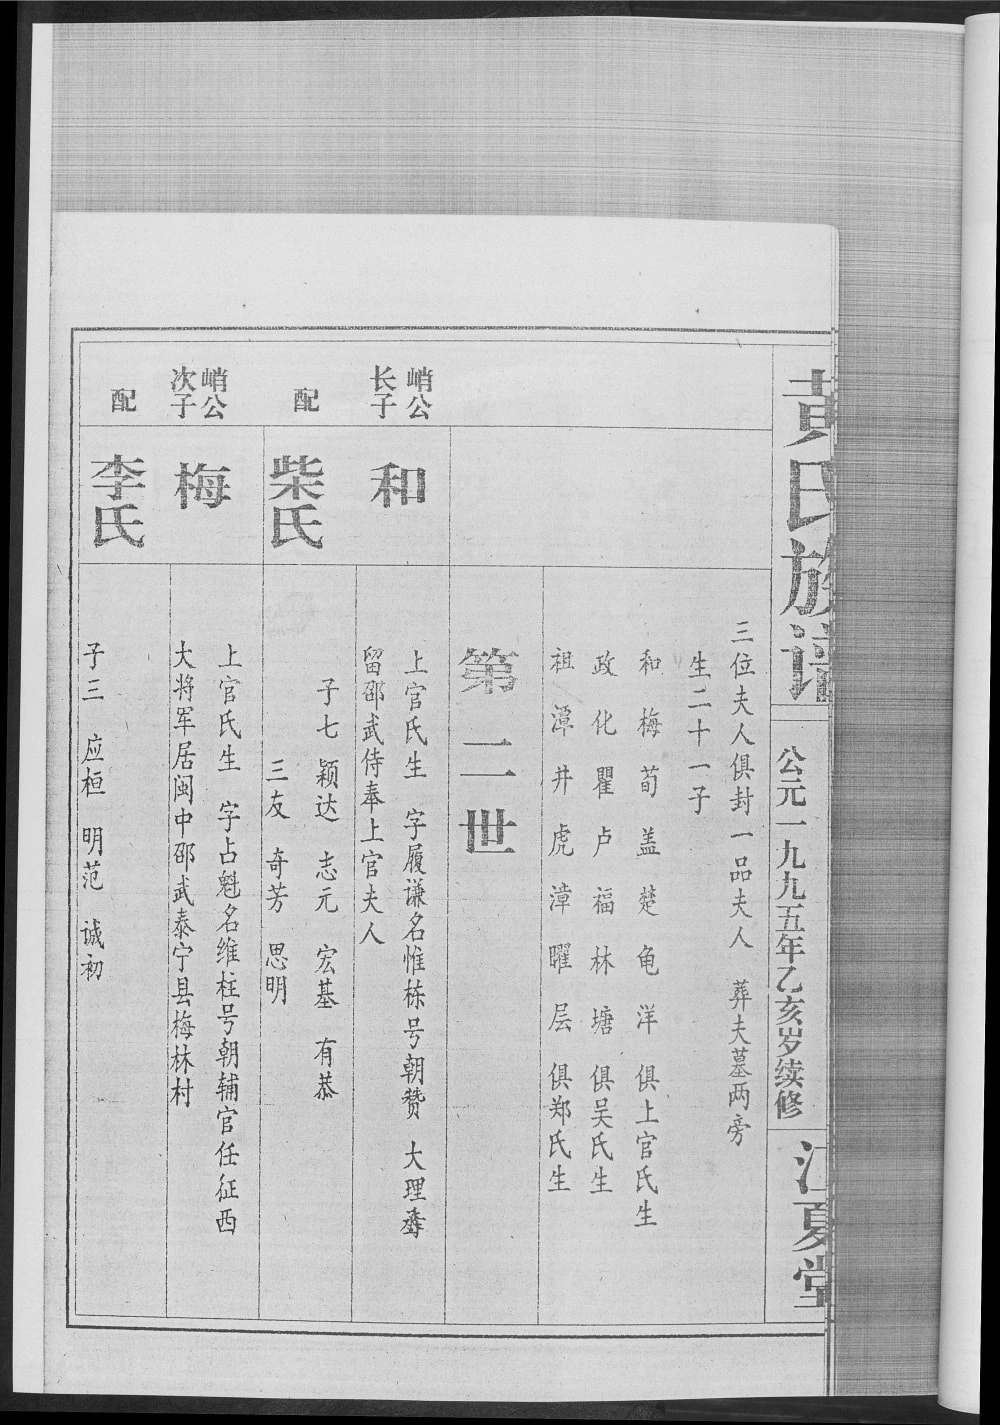 黄氏族谱
公元一九九五年乙亥岁续修
江夏堂
三位夫人俱封一品夫人 葬夫墓两旁
生二十一子
和梅荀盖楚龟洋 俱上官氏生
政化瞿卢福林塘 俱吴氏生
祖潭井虎漳曜层 俱郑氏生
第二世
峭公
长子
和
上官氏生 字履谦名惟栋号朝赞 大理
留邵武侍奉上官夫人
配
柴氏
子七 颖达 志元 宏基 有恭
三友 奇芳 思明
峭公
次子
梅
上官氏生 字占魁名维柱号朝辅官任征西
大将军居闽中邵武泰宁县梅林村
配
李氏
子三 应桓 明范 诚初